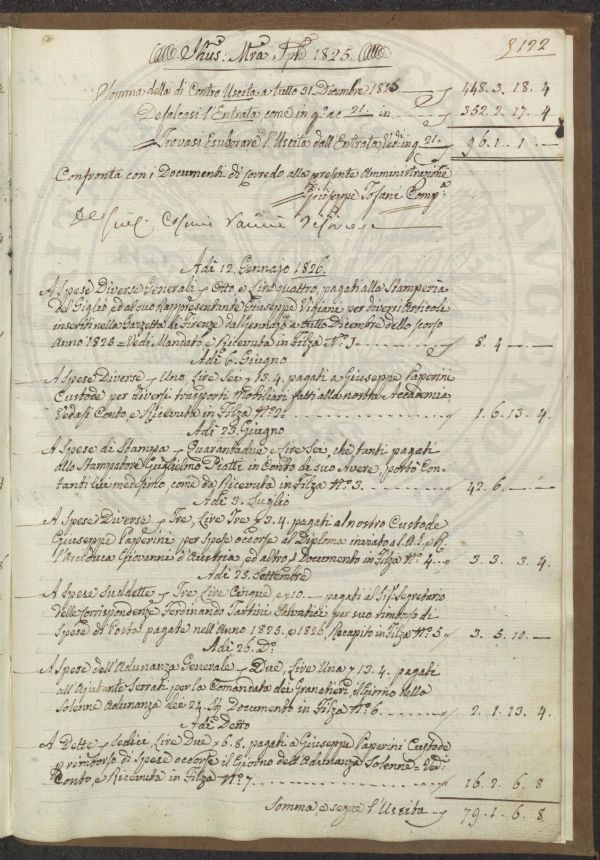 Jhus: Mra Jph 1825. 122
Somma della di Contro Uscita a tutto 31. Dicembre 1825 448. 3. 18. 4
Defalcasi l'Entrata come in q.o a c 21. in 352. 2. 17. 4
Trovasi Esuberare l'Uscita dall'Entrata, Ved. in q. 21. 96. 1. 1. —
Confronta con i Documenti di corredo alla presente Amministrazione
Giuseppe Tofani Comp.
Cosimo Vanni
Adì 12. Gennajo 1826.
A Spese Diverse Generali Otto e Lire quattro, pagati alla Stamperia
del Giglio, ed al suo Rappresentante Giuseppe Vigiani per diversi Articoli
inseriti nella Gazzetta di Firenze dal Gennajo a tutto Dicembre dello scorso
Anno 1825 = Vedi Mandato e Ricevuta in Filza N.o 1 8. 4 —
Adì 6. Giugno
A Spese Diverse Uno, Lire Sei e 13. 4. pagati a Giuseppe Paperini
Custode per diversi trasporti Mobiliari fatti alla nostra Accademia
Vedasi Conto, e Ricevuta in Filza N.o 2. 1. 6. 13. 4.
Adì 23. Giugno
A Spese di Stampa Quarantadue e Lire Sei, che tanti pagati
allo Stampatore Guglielmo Piatti in Conto di suo Avere, portò Con-
tanti lui medesimo, come da Ricevuta in Filza N.o 3. 42. 6. — —
Adì 3. Luglio
A Spese Diverse Tre, Lire Tre e 3. 4. pagati al nostro Custode
Giuseppe Paperini per Spese occorse al Diploma inviato a S. A. I. e R.
l'Arciduca Giovanni d'Austria, ed altro, Documento in Filza N.o 4. 3. 3. 3. 4
Adì 25. Settembre
A Spese Suddette Tre Lire Cinque e 10. — pagati al Sig. Segretario
delle Corrispondenze Ferdinando Tartini Salvatici per suo rimborso di
Spese di Posta pagate nell'Anno 1825. e 1826, Recapito in Filza N.o 5 3. 5. 10. —
Adì 26. D.o
A Spese dell'Adunanza Generale Due, Lire Una e 13. 4. pagati
all'Ajutante Serrati per la Comandata dei Granatieri, il Giorno della
Solenne Adunanza dei 24. Documento in Filza N.o 6. 2. 1. 13. 4.
Adì Detto
A Dette Sedici, Lire Due e 6. 8. pagati a Giuseppe Paperini Custode
rimborso di Spese occorse il Giorno dell'Adunanza Solenne = Ved.
Conto, e Ricevuta in Filza N.o 7 16. 2. 6. 8
Somma, e segue l'Uscita 79. 1. 6. 8